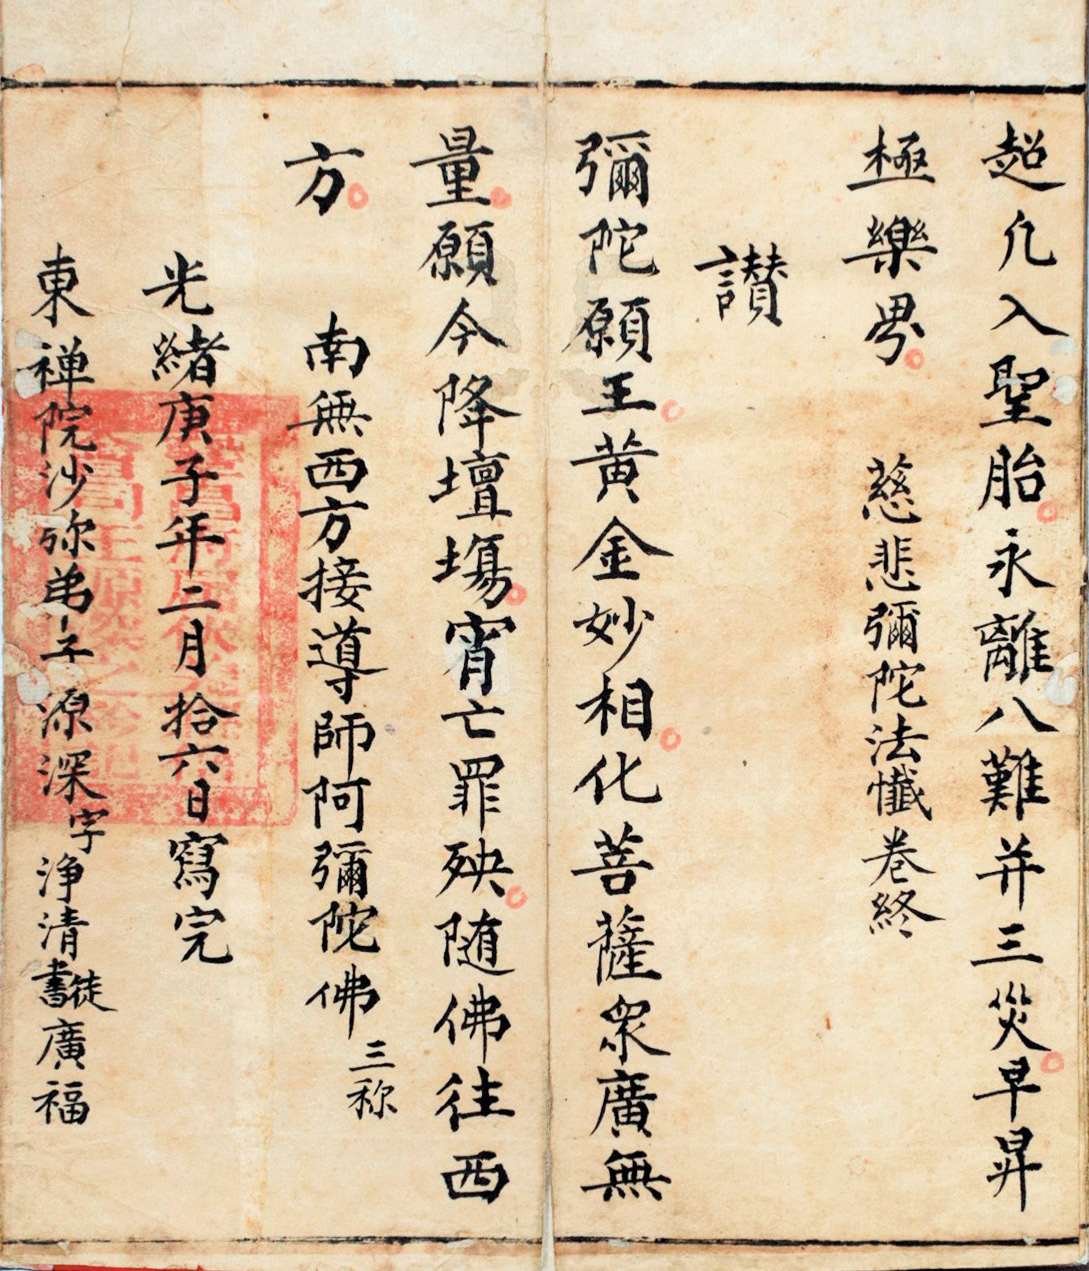 超凢入聖胎永離八難并三災早昇
極樂界
慈悲彌陀法懺卷終
讃
彌陀願王黄金妙相化菩薩衆廣無
量願今降壇塲宵亡罪殃随佛往西
方
南無西方接導師阿彌陀佛三称
光緒庚子年二月拾六日寫完
東禅院沙弥弟子源深字浄清書徒廣福